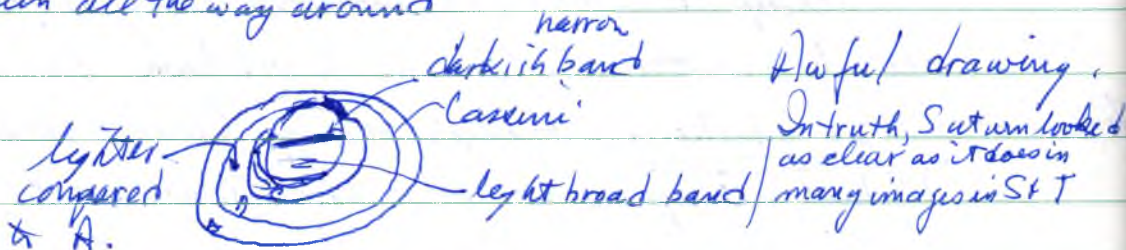 all the way around
narrow
darkish band
Cassini
lighter
compared
to A.
light broad band
A
B
C
Awful drawing.
In truth, Saturn looked
as clear as it does in
many images in S&T